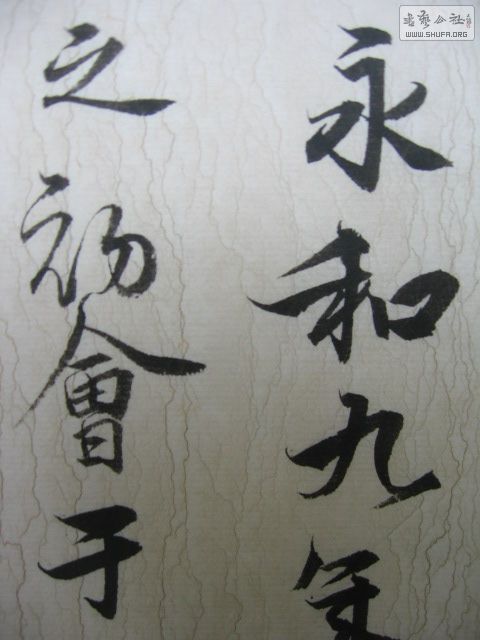 永和九年
之初會于
書藝公社
WWW.SHUFA.ORG